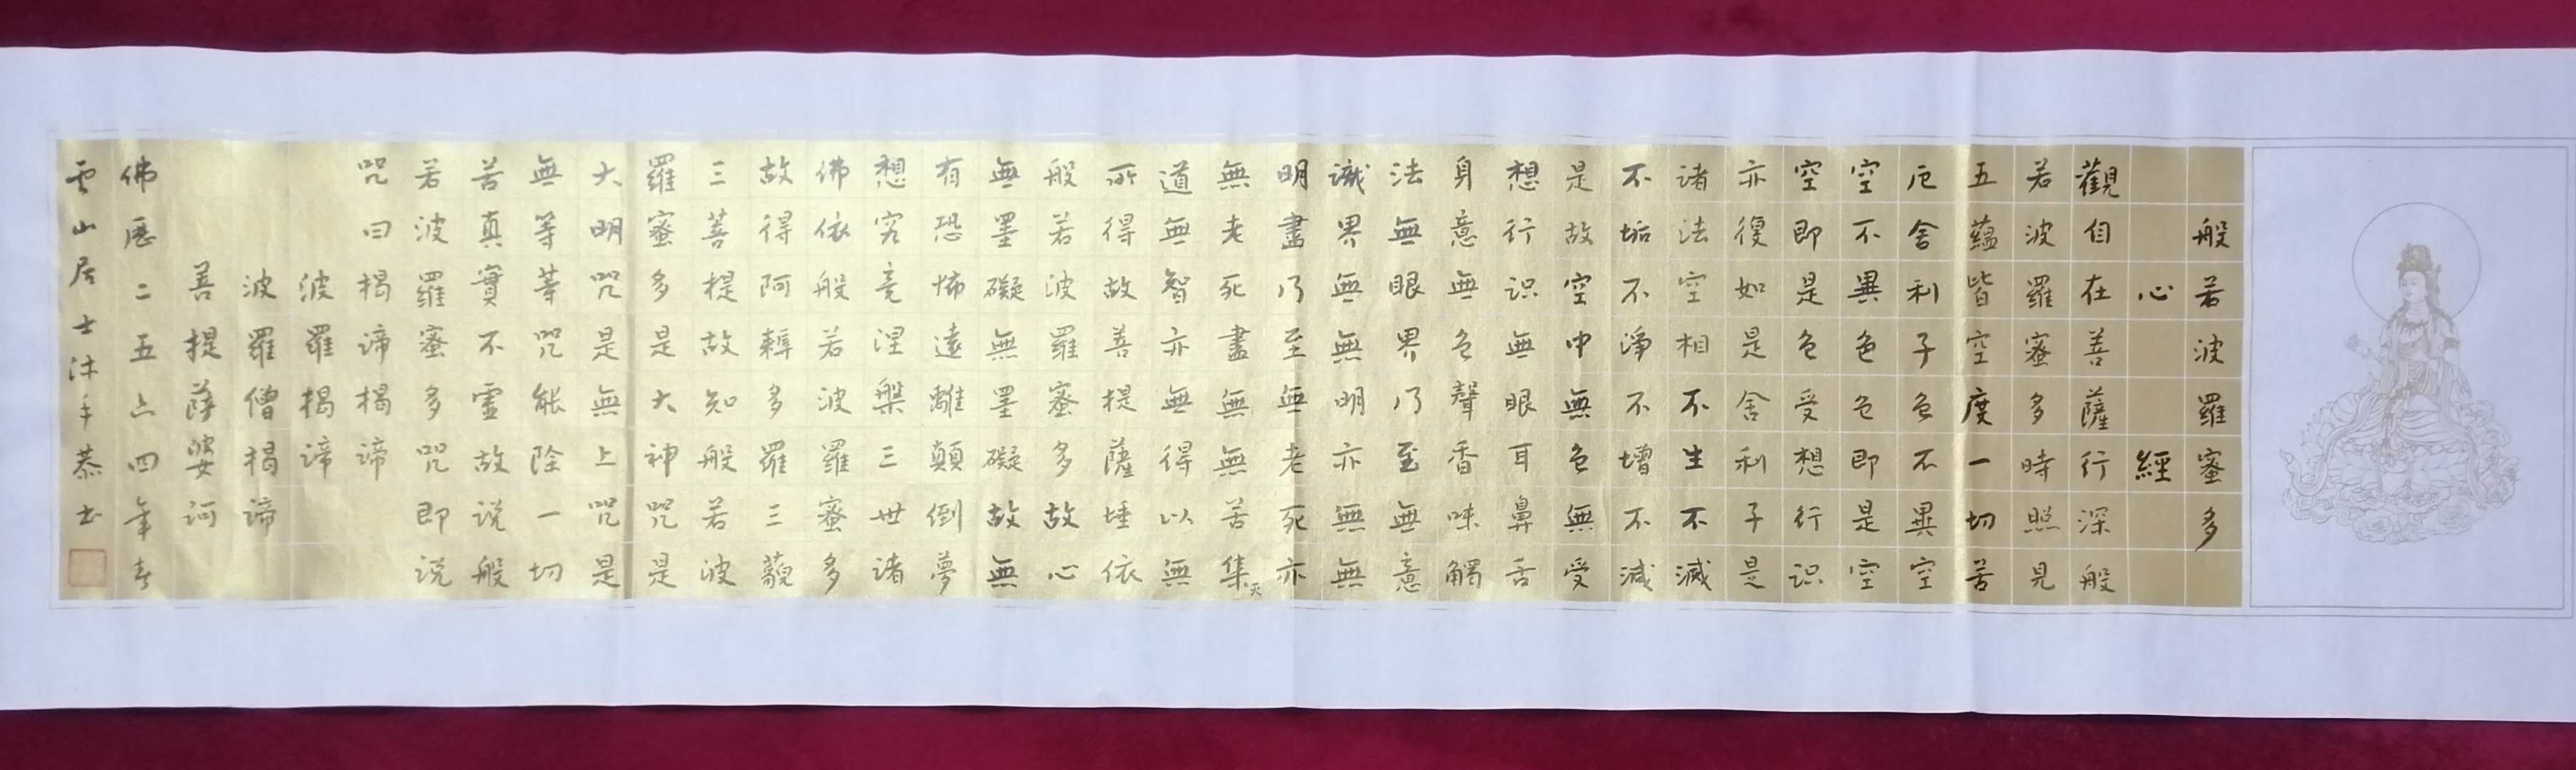 般若波羅蜜多
心經
觀自在菩薩行深般
若波羅蜜多時照見
五蘊皆空度一切苦
厄舍利子色不異空
空不異色色即是空
空即是色受想行识
亦復如是舍利子是
諸法空相不生不滅
不垢不淨不增不減
是故空中無色無受
想行识無眼耳鼻舌
身意無色聲香味觸
法無眼界乃至無意
識界無無明亦無無
明盡乃至無老死亦
無老死盡無無苦集灭
道無智亦無得以無
所得故菩提薩埵依
般若波羅蜜多故心
無罣礙無罣礙故無
有恐怖遠離顛倒夢
想究竟涅槃三世諸
佛依般若波羅蜜多
故得阿耨多羅三藐
三菩提故知般若波
羅蜜多是大神咒是
大明咒是無上咒是
無等等咒能除一切
苦真實不虛故说般
若波羅蜜多咒即说
咒曰揭諦揭諦
波羅揭諦
波羅僧揭諦
菩提薩婆訶
佛歷二五六四年春
雲山居士沐手恭书